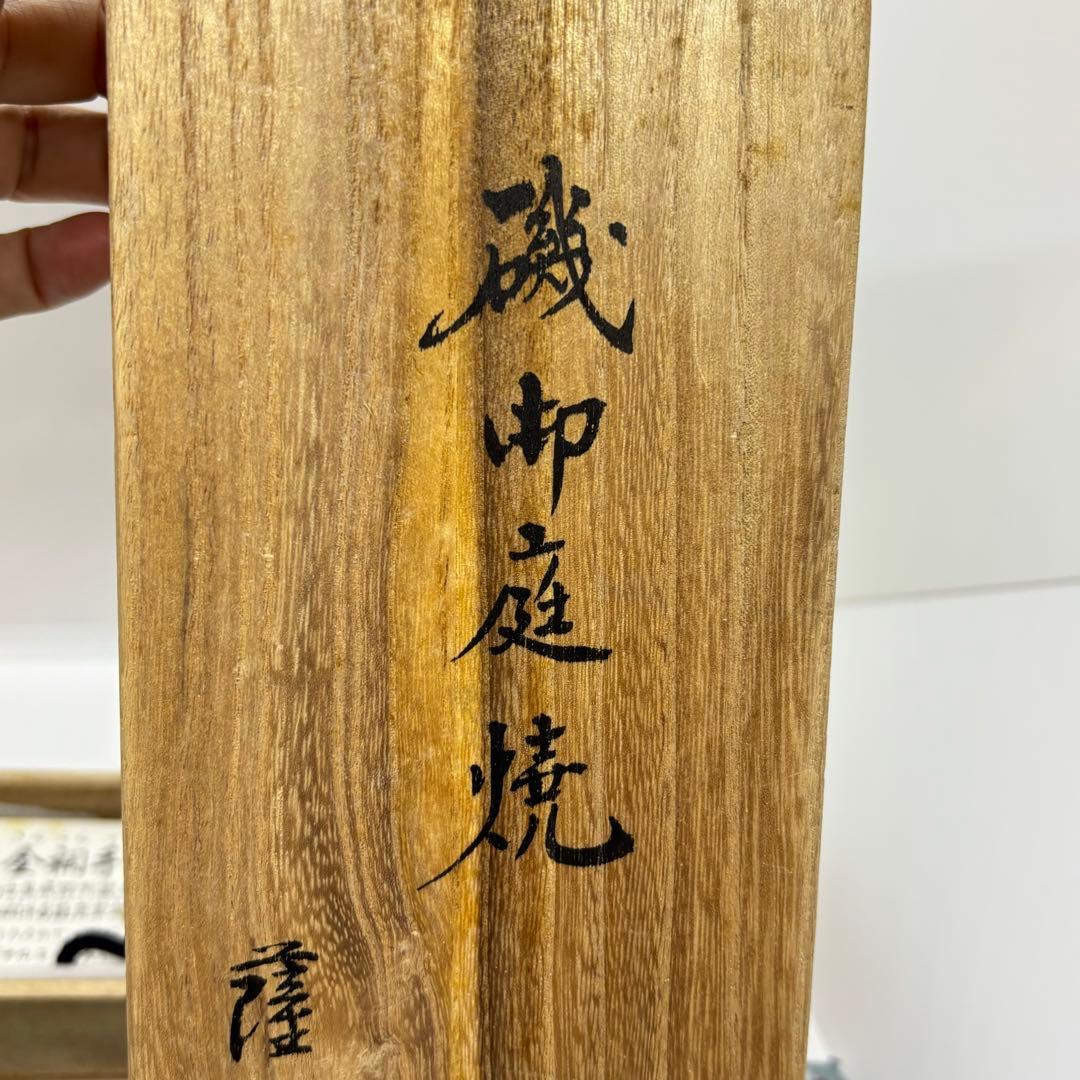 磯御庭焼
薩
金襴手